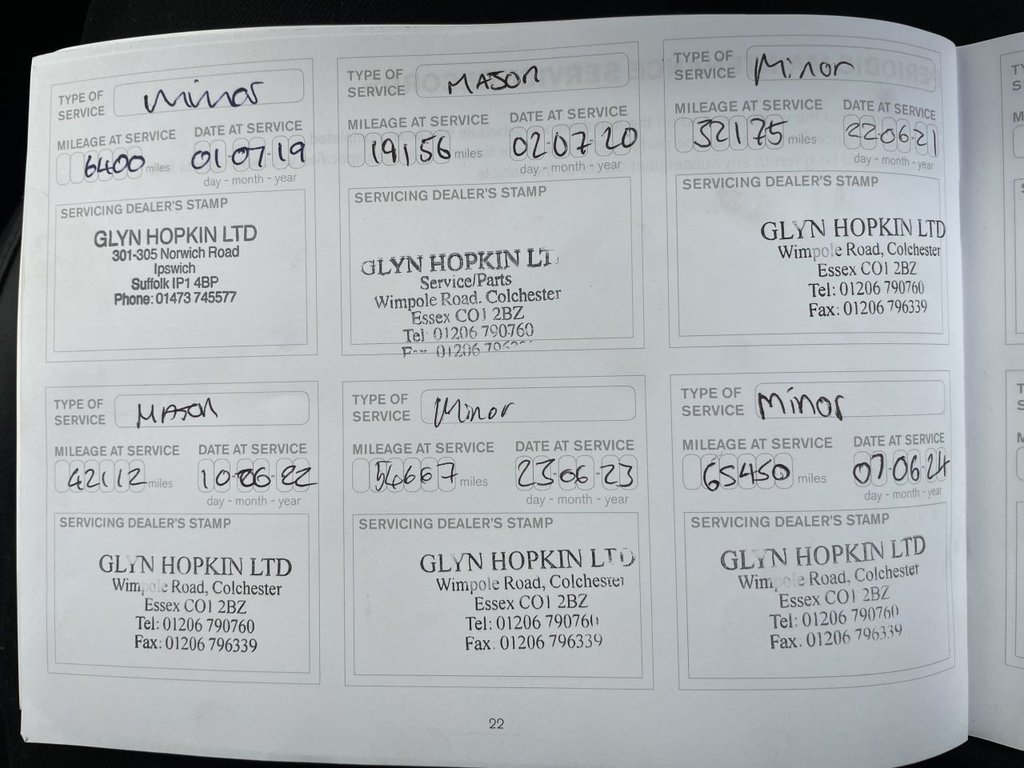 TYPE OF SERVICE Minor
MILEAGE AT SERVICE DATE AT SERVICE
6400 miles 01 07 19
day - month - year
SERVICING DEALER'S STAMP
GLYN HOPKIN LTD
301-305 Norwich Road
Ipswich
Suffolk IP1 4BP
Phone: 01473 745577
TYPE OF SERVICE MAJOR
MILEAGE AT SERVICE DATE AT SERVICE
19156 miles 02.07.20
day - month - year
SERVICING DEALER'S STAMP
GLYN HOPKIN LT
Service/Parts
Wimpole Road. Colchester
Essex CO1 2BZ
Tel: 01206 790760
01206
TYPE OF SERVICE Minor
MILEAGE AT SERVICE DATE AT SERVICE
32175 miles 22.06.21
day - month - year
SERVICING DEALER'S STAMP
GLYN HOPKIN LTD
Wimpole Road, Colchester
Essex CO1 2BZ
Tel: 01206 790760
Fax: 01206 796339
TYPE OF SERVICE MAJOR
MILEAGE AT SERVICE DATE AT SERVICE
42112 miles 10.06.22
day - month - year
SERVICING DEALER'S STAMP
GLYN HOPKIN LTD
Wimpole Road, Colchester
Essex CO1 2BZ
Tel: 01206 790760
Fax: 01206 796339
TYPE OF SERVICE Minor
MILEAGE AT SERVICE DATE AT SERVICE
54667 miles 23.06.23
day - month - year
SERVICING DEALER'S STAMP
GLYN HOPKIN LTD
Wimpole Road, Colchester
Essex CO1 2BZ
Tel: 01206 790760
Fax: 01206 796339
TYPE OF SERVICE Minor
MILEAGE AT SERVICE DATE AT SERVICE
65450 miles 07.06.24
day - month - year
SERVICING DEALER'S STAMP
GLYN HOPKIN LTD
Wimpole Road, Colchester
Essex CO1 2BZ
Tel: 01206 790760
Fax. 01206 796339
22